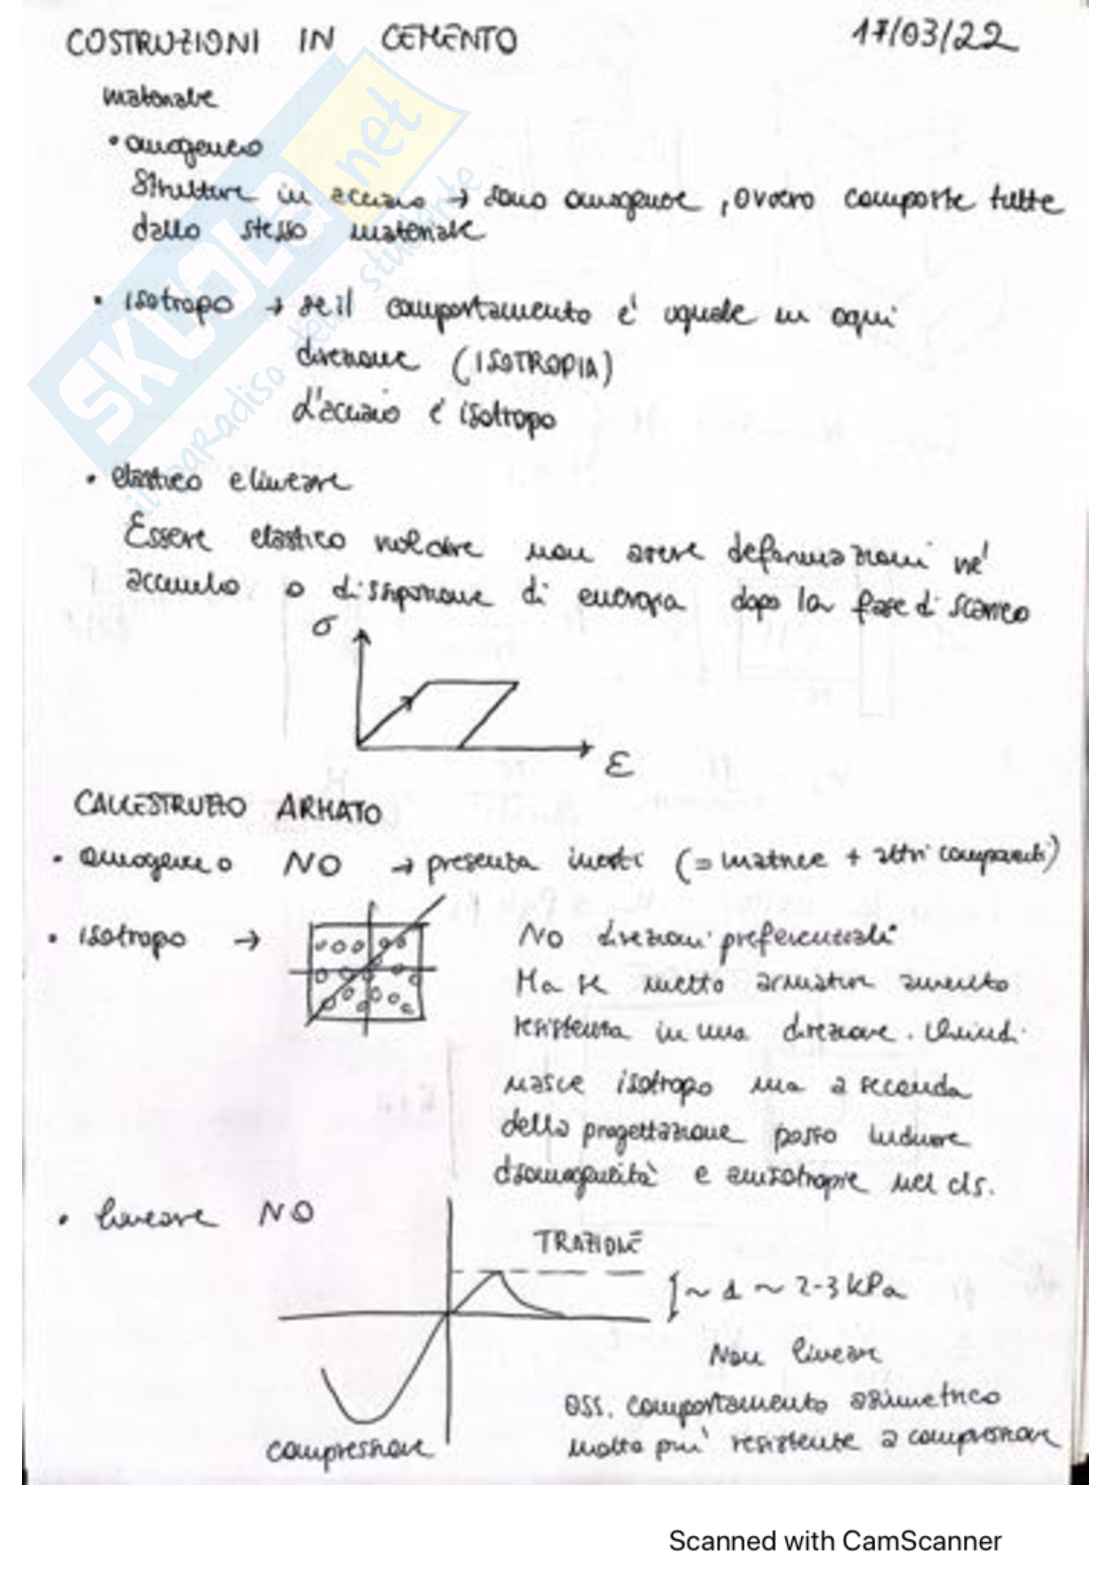 COSTRUZIONI IN CEMENTO 17/03/22
materiale
• omogeneo
Strutture in acciaio → sono omogenee, ovvero composte tutte
dallo stesso materiale
• isotropo → se il comportamento e' uguale in ogni
direzione (ISOTROPIA)
L'acciaio e' isotropo
• elastico e lineare
Essere elastico vuol dire non avere deformazioni ne'
accumulo o dissipazione di energia dopo la fase di scarico
σ
ε
CALCESTRUZZO ARMATO
• omogeneo NO → presenta inerti (= matrice + altri componenti)
• isotropo → No direzioni preferenziali
Ma se metto armature aumento
resistenza in una direzione. Quindi
nasce isotropo ma a seconda
della progettazione posso indurre
disomogeneità e anisotropie nel cls.
• lineare NO
TRAZIONE
~ 1 ~ 2-3 kPa
Non lineare
OSS. comportamento asimmetrico
molto piu' resistente a compressione
compressione
SKUOLA.net
il paradiso dello studente
Scanned with CamScanner